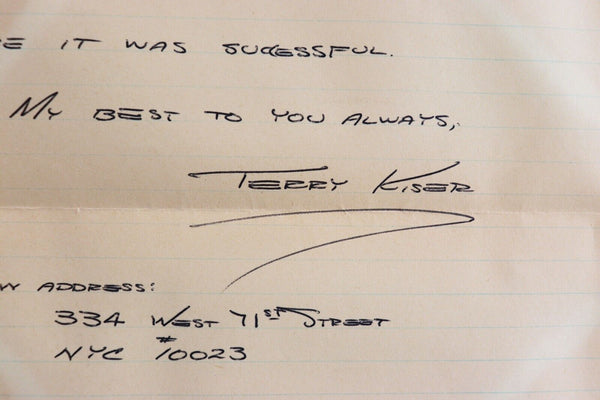 E IT WAS SUCCESSFUL.
MY BEST TO YOU ALWAYS,
TERRY KISER
W ADDRESS:
334 WEST 71ST STREET
NYC #10023